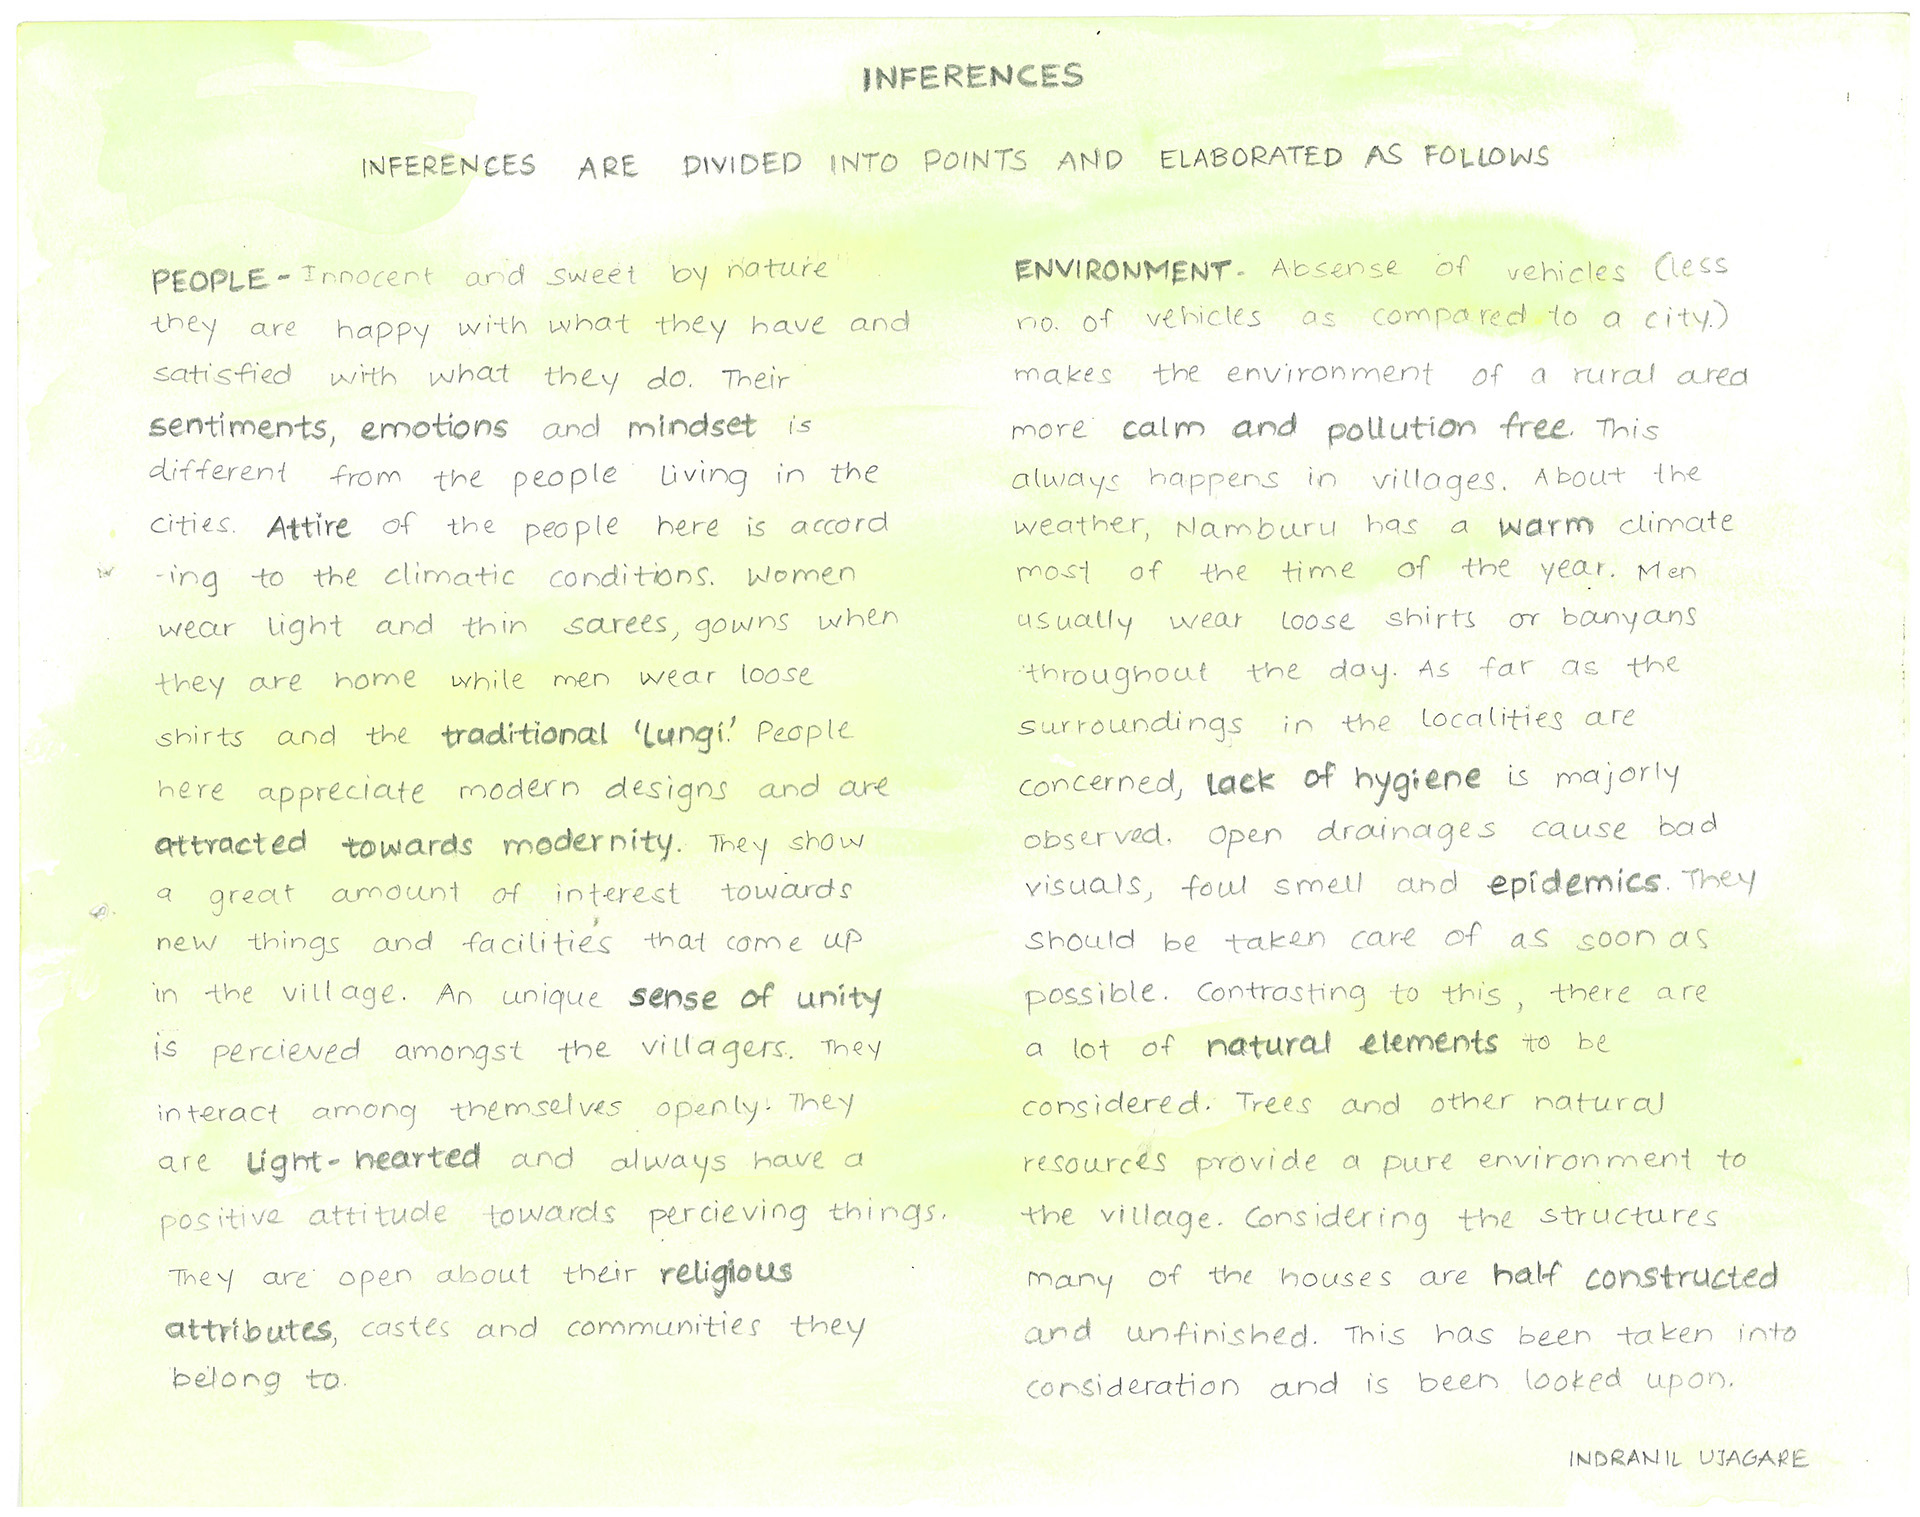 INFERENCES
INFERENCES ARE DIVIDED INTO POINTS AND ELABORATED AS FOLLOWS
PEOPLE - Innocent and sweet by nature
they are happy with what they have and
satisfied with what they do. Their
sentiments, emotions and mindset is
different from the people living in the
cities. Attire of the people here is accord
-ing to the climatic conditions. Women
wear light and thin sarees, gowns when
they are home while men wear loose
shirts and the traditional 'lungi.' People
here appreciate modern designs and are
attracted towards modernity. They show
a great amount of interest towards
new things and facilities that come up
in the village. An unique sense of unity
is percieved amongst the villagers. They
interact among themselves openly. They
are light-hearted and always have a
positive attitude towards percieving things.
They are open about their religious
attributes, castes and communities they
belong to.
ENVIRONMENT - Absense of vehicles (less
no. of vehicles as compared to a city.)
makes the environment of a rural area
more calm and pollution free. This
always happens in villages. About the
weather, Namburu has a warm climate
most of the time of the year. Men
usually wear loose shirts or banyans
throughout the day. As far as the
surroundings in the localities are
concerned, lack of hygiene is majorly
observed. Open drainages cause bad
visuals, foul smell and epidemics. They
should be taken care of as soon as
possible. Contrasting to this, there are
a lot of natural elements to be
considered. Trees and other natural
resources provide a pure environment to
the village. Considering the structures
many of the houses are half constructed
and unfinished. This has been taken into
consideration and is been looked upon.
INDRANIL UJAGARE